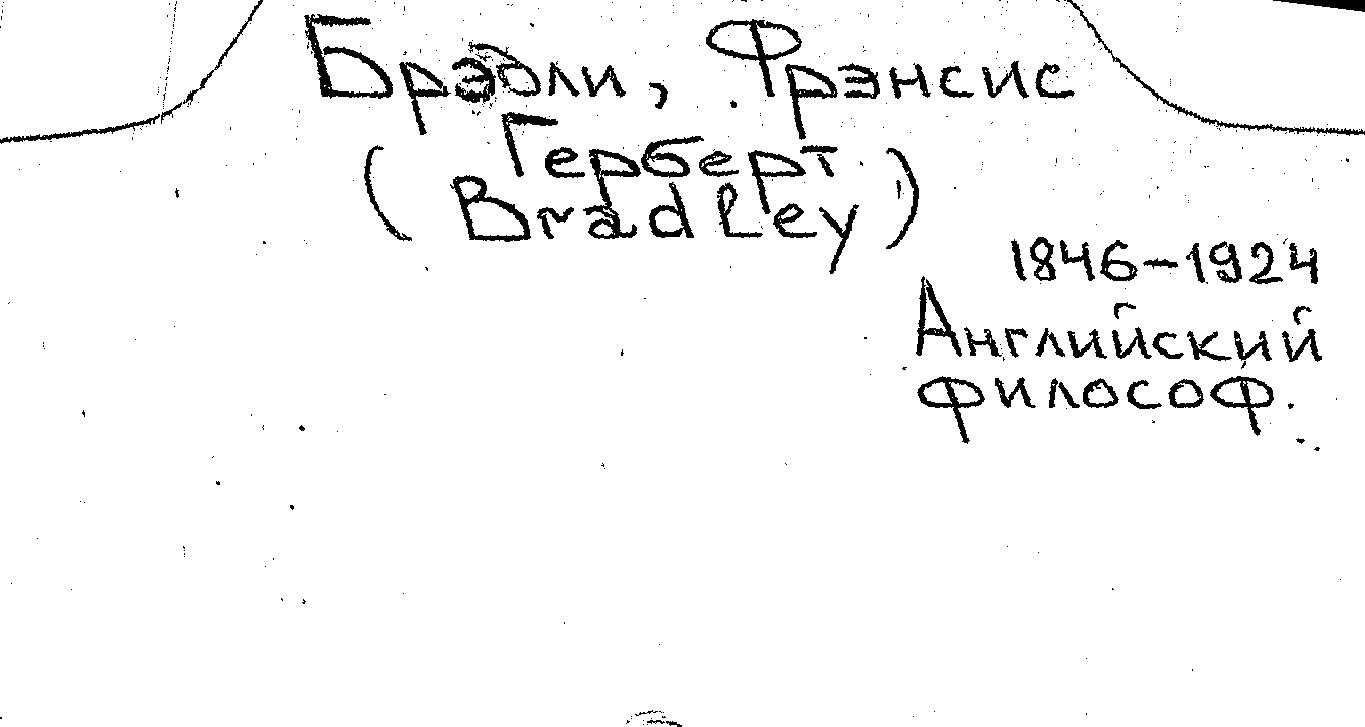 Брэдли, Фрэнсис
Герберт
(Bradley)
1846-1924
Английский
философ.